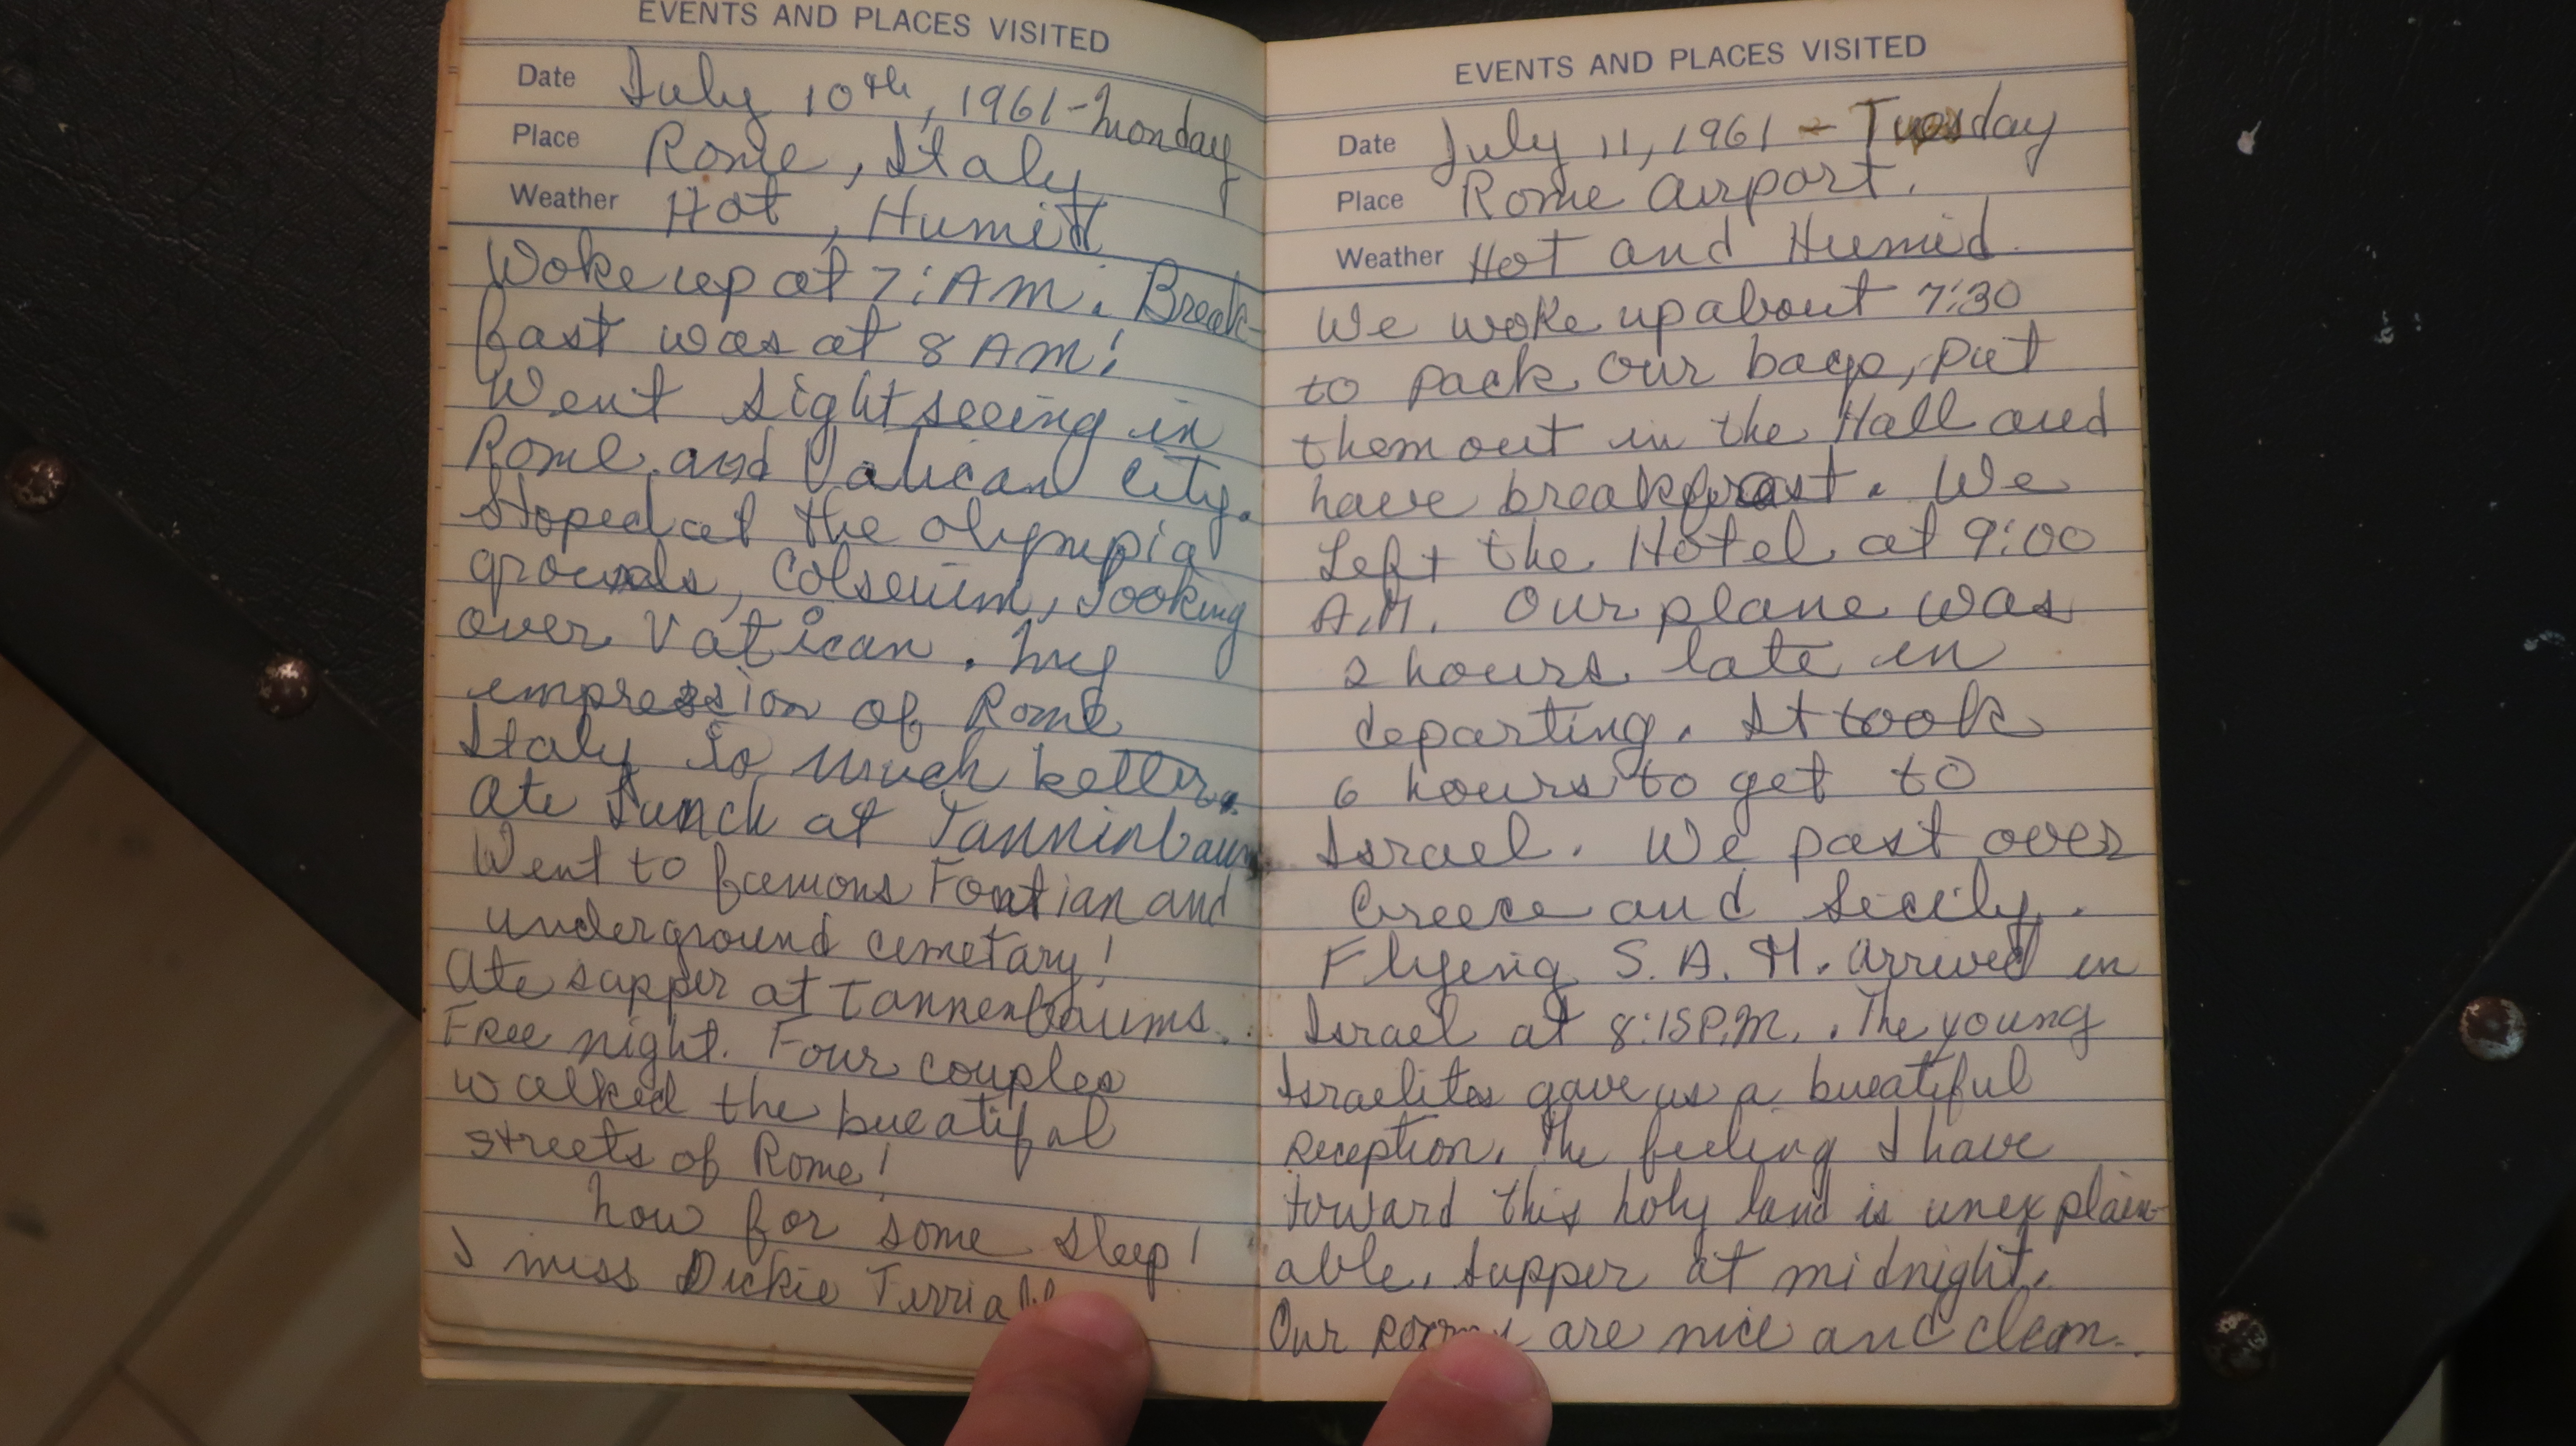 EVENTS AND PLACES VISITED
Date July 10th, 1961 - Monday
Place Rome, Italy
Weather Hot, Humid
Woke up at 7: AM. Break-
fast was at 8 AM!
Went sightseeing in
Rome and Vatican City.
Stoped at the olympia
grounds, Colseuim, looking
over Vatican. My
empression of Rome
Italy is much better.
Ate Lunch at Tanninbaum
Went to famous Fontian and
underground cemetary!
Ate supper at Tannenbaums.
Free night. Four couples
walked the bueatiful
streets of Rome!
Now for some sleep!
I miss Dickie
EVENTS AND PLACES VISITED
Date July 11, 1961 - Tuesday
Place Rome Airport.
Weather Hot and Humid.
We woke up about 7:30
to pack our bags, put
them out in the Hall and
have breakfast. We
Left the Hotel at 9:00
A.M. Our plane was
2 hours late in
departing. It took
6 hours to get to
Israel. We past over
Greece and Sicily.
Flyeing S.A.M. arrived in
Israel at 8:15 P.M.. The young
Israelites gave us a bueatiful
reception. The feeling I have
toward this holy land is unexplain-
able. Supper at midnight.
Our rooms are nice and clean.